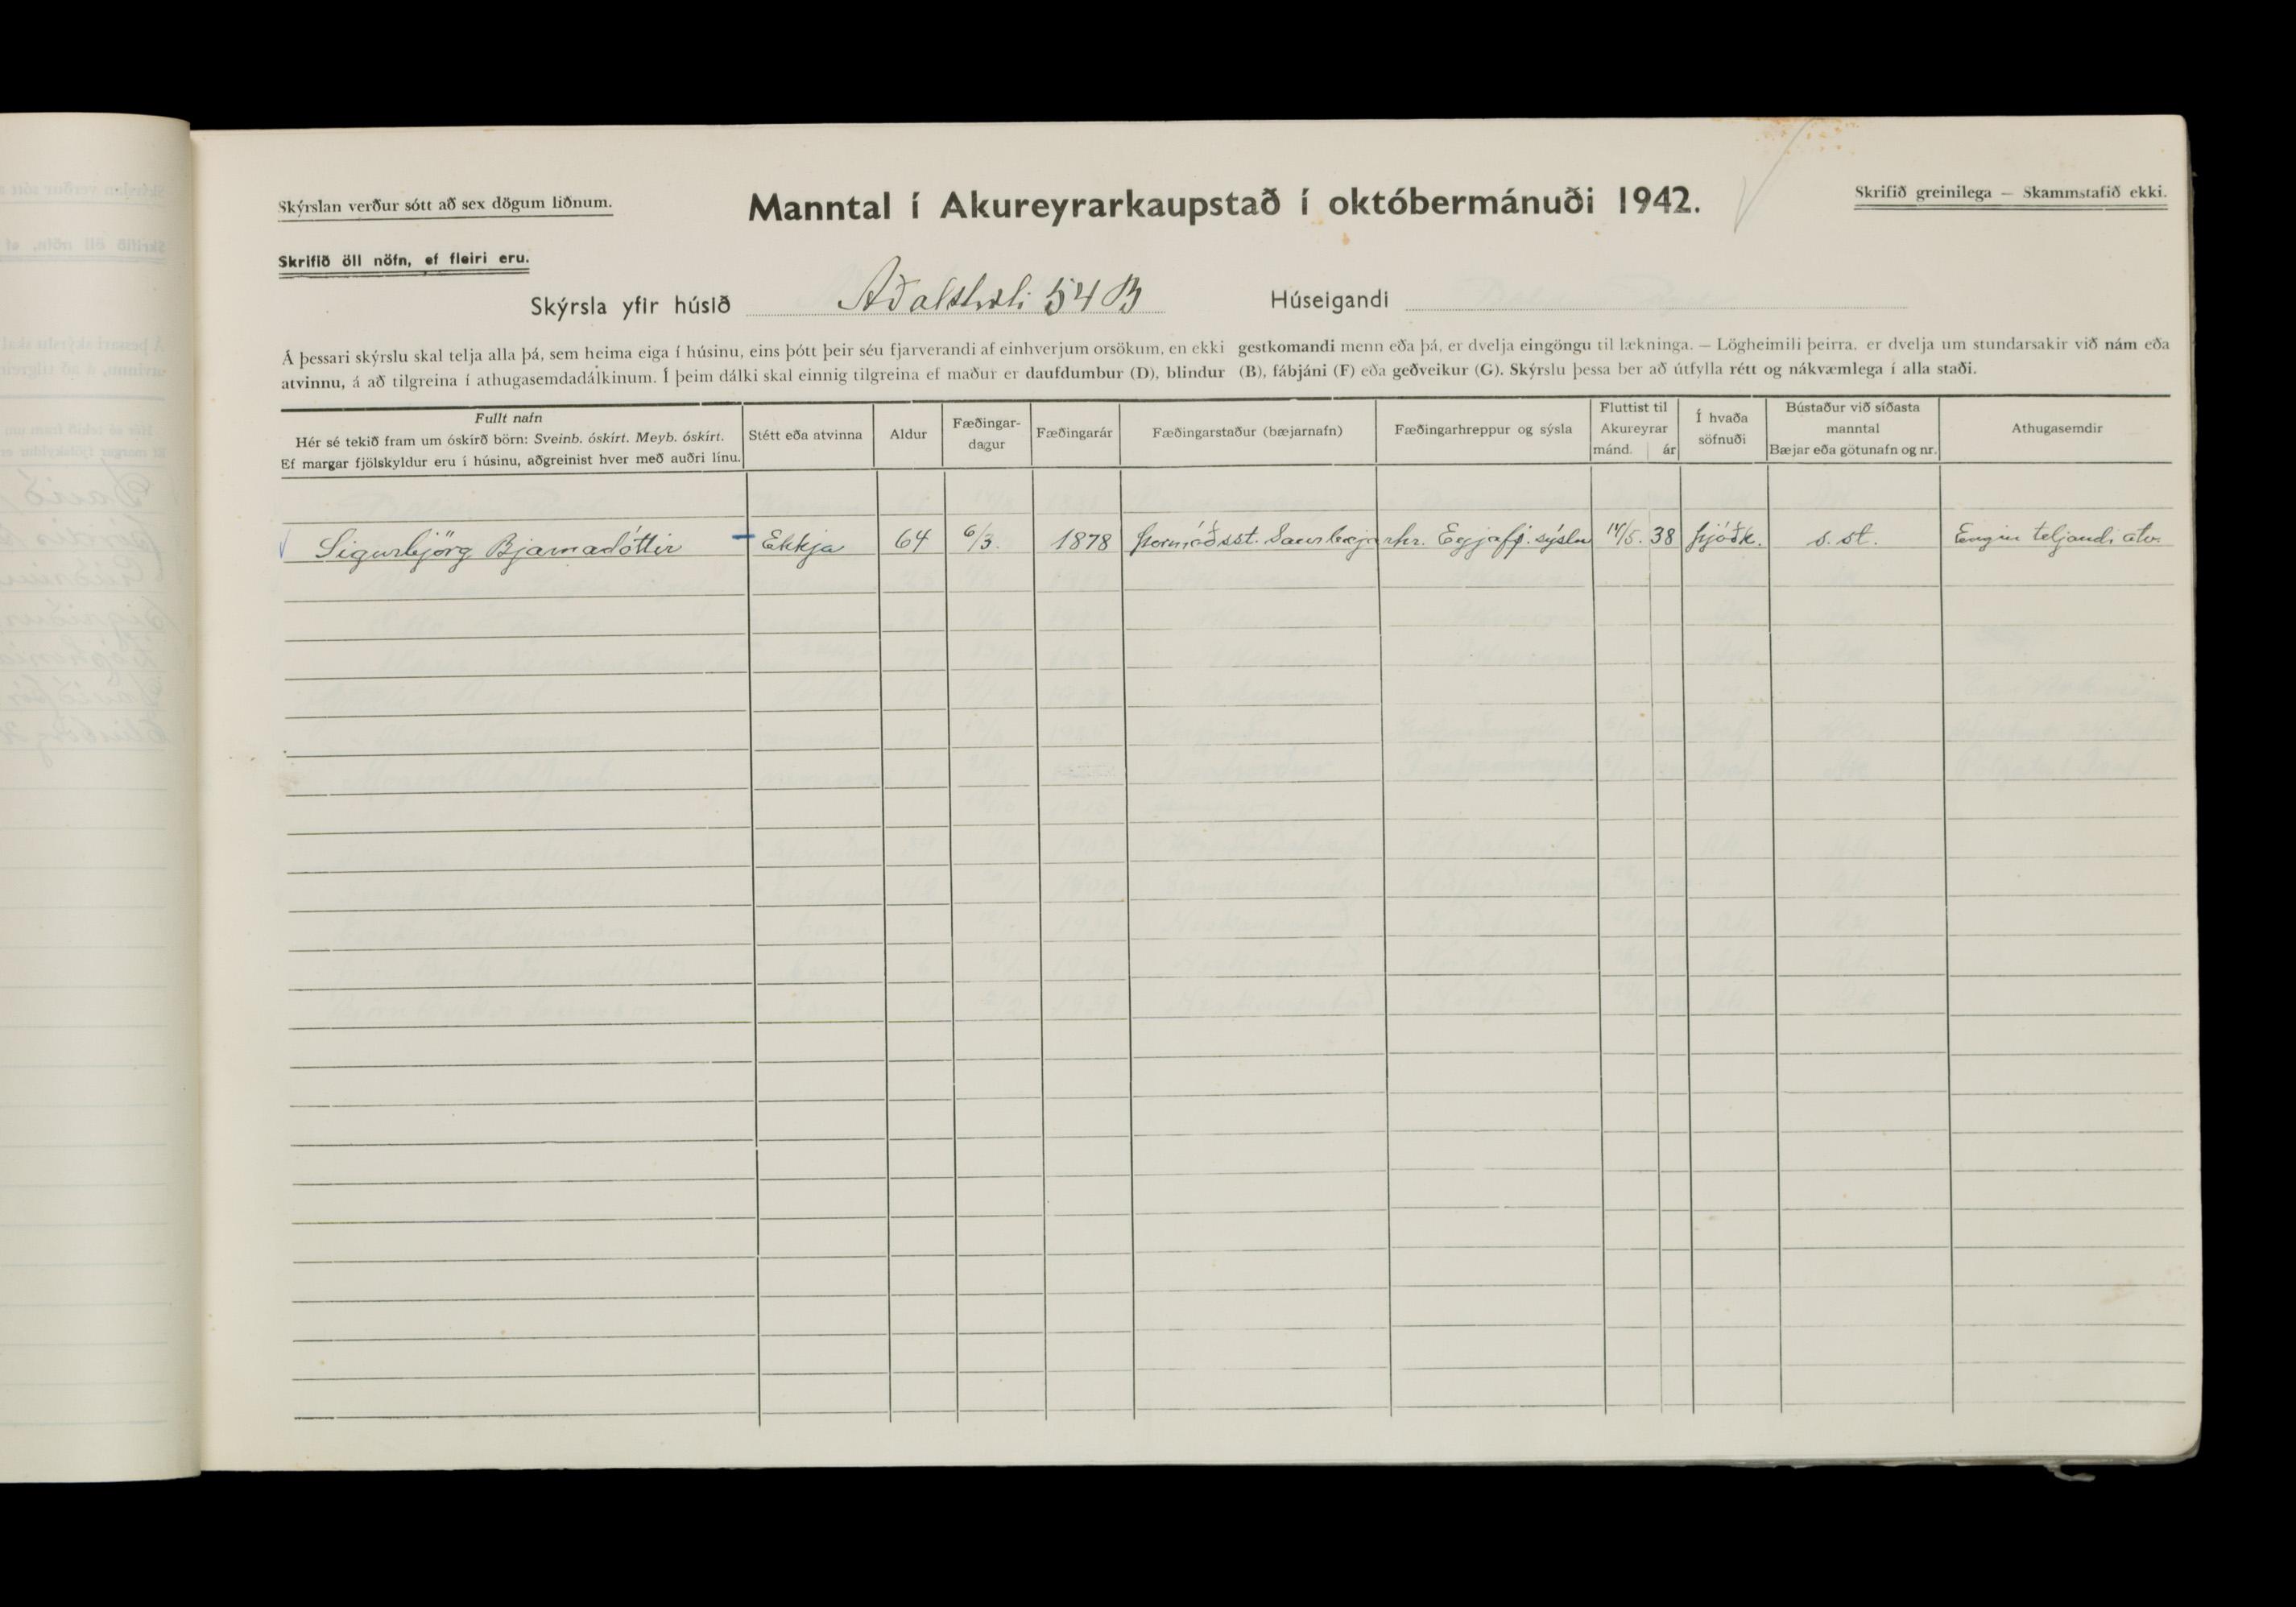 Skýrslan verður sótt að sex dögum liðnum.
Manntal í Akureyrarkaupstað í októbermánuði 1942.
Skrifið greinilega — Skammstafið ekki.
Skrifið öll nöfn, ef fleiri eru.
Skýrsla yfir húsið Aðalstræti 54 B Húseigandi
Á þessari skýrslu skal telja alla þá, sem heima eiga í húsinu, eins þótt þeir séu fjarverandi af einhverjum orsökum, en ekki gestkomandi menn eða þá, er dvelja eingöngu til lækninga. — Lögheimili þeirra. er dvelja um stundarsakir við nám eða
atvinnu, á að tilgreina í athugasemdadálkinum. Í þeim dálki skal einnig tilgreina ef maður er daufdumbur (D), blindur (B), fábjáni (F) eða geðveikur (G). Skýrslu þessa ber að útfylla rétt og nákvæmlega í alla staði.
Fullt nafn
Hér sé tekið fram um óskírð börn: Sveinb. óskírt. Meyb. óskírt.
Ef margar fjölskyldur eru í húsinu, aðgreinist hver með auðri línu.
Stétt eða atvinna
Aldur
Fæðingar-
dagur
Fæðingarár
Fæðingarstaður (bæjarnafn)
Fæðingarhreppur og sýsla
Fluttist til
Akureyrar
mánd. ár
Í hvaða
söfnuði
Bústaður við síðasta
manntal
Bæjar eða götunafn og nr.
Athugasemdir
Sigurbjörg Bjarnadóttir Ekkja 64 6/3. 1878 Þormóðsst. Saurbæjarhr. Eyjafj. sýslu 14/5. 38 Þjóðk. s. st. Engin teljandi atv.